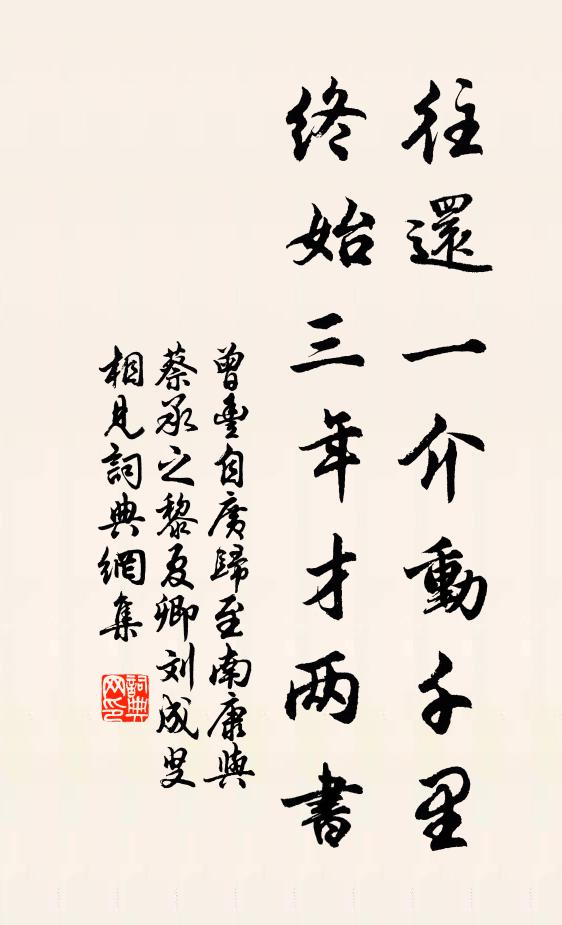 往還一介動千里
終始三年才两書
曾豐自廣歸至南康與
蔡承之黎夏卿刘成叟
相見詞典網集
詞典
网印